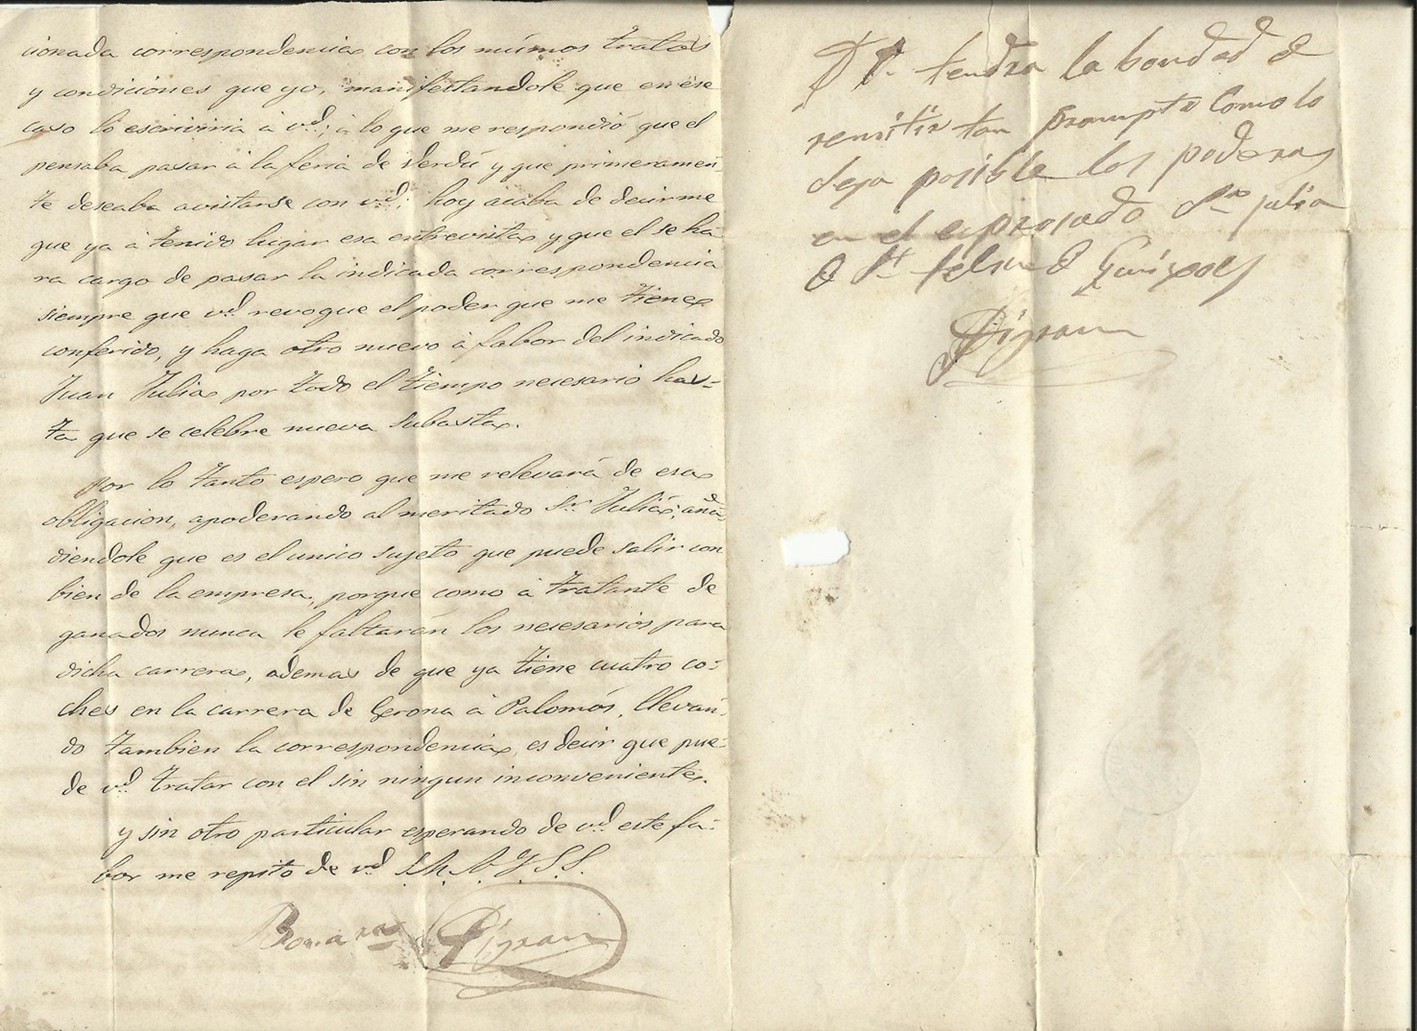 cionada correspondencia con los mismos tratos
y condiciones que yo, manifestandole que en ese
caso lo escriviria á vd; á lo que me respondió que el
pensaba pasar á la feria de Verdú y que primeramen-
te deseaba avistarse con vd; hoy acaba de decirme
que ya á tenido lugar esa entrevista y que el se ha-
ra cargo de pasar la indicada correspondencia
siempre que vd revoque el poder que me tiene
conferido, y haga otro nuevo á fabor del indicado
Juan Julia por todo el tiempo necesario has-
ta que se celebre nueva subasta.
Por lo tanto espero que me relevará de esa
obligacion, apoderando al meritado Sr Juliá; aña-
diendole que es el unico sujeto que puede salir con
bien de la empresa, porque como á tratante de
ganados nunca le faltarán los necesarios para
dicha carrera, ademas de que ya tiene cuatro co-
ches en la carrera de Gerona á Palamós, llevan-
do tambien la correspondencia, es decir que pue-
de vd tratar con el sin ningun inconveniente.
y sin otro particular esperando de vd este fa-
bor me repito de vd S.S.
Pigrau
P. tendra la bondad d
remitir tan prompte como lo
sega posible los poderas
en el espresado Juliá
d St feliu d Guixols
Pigrau